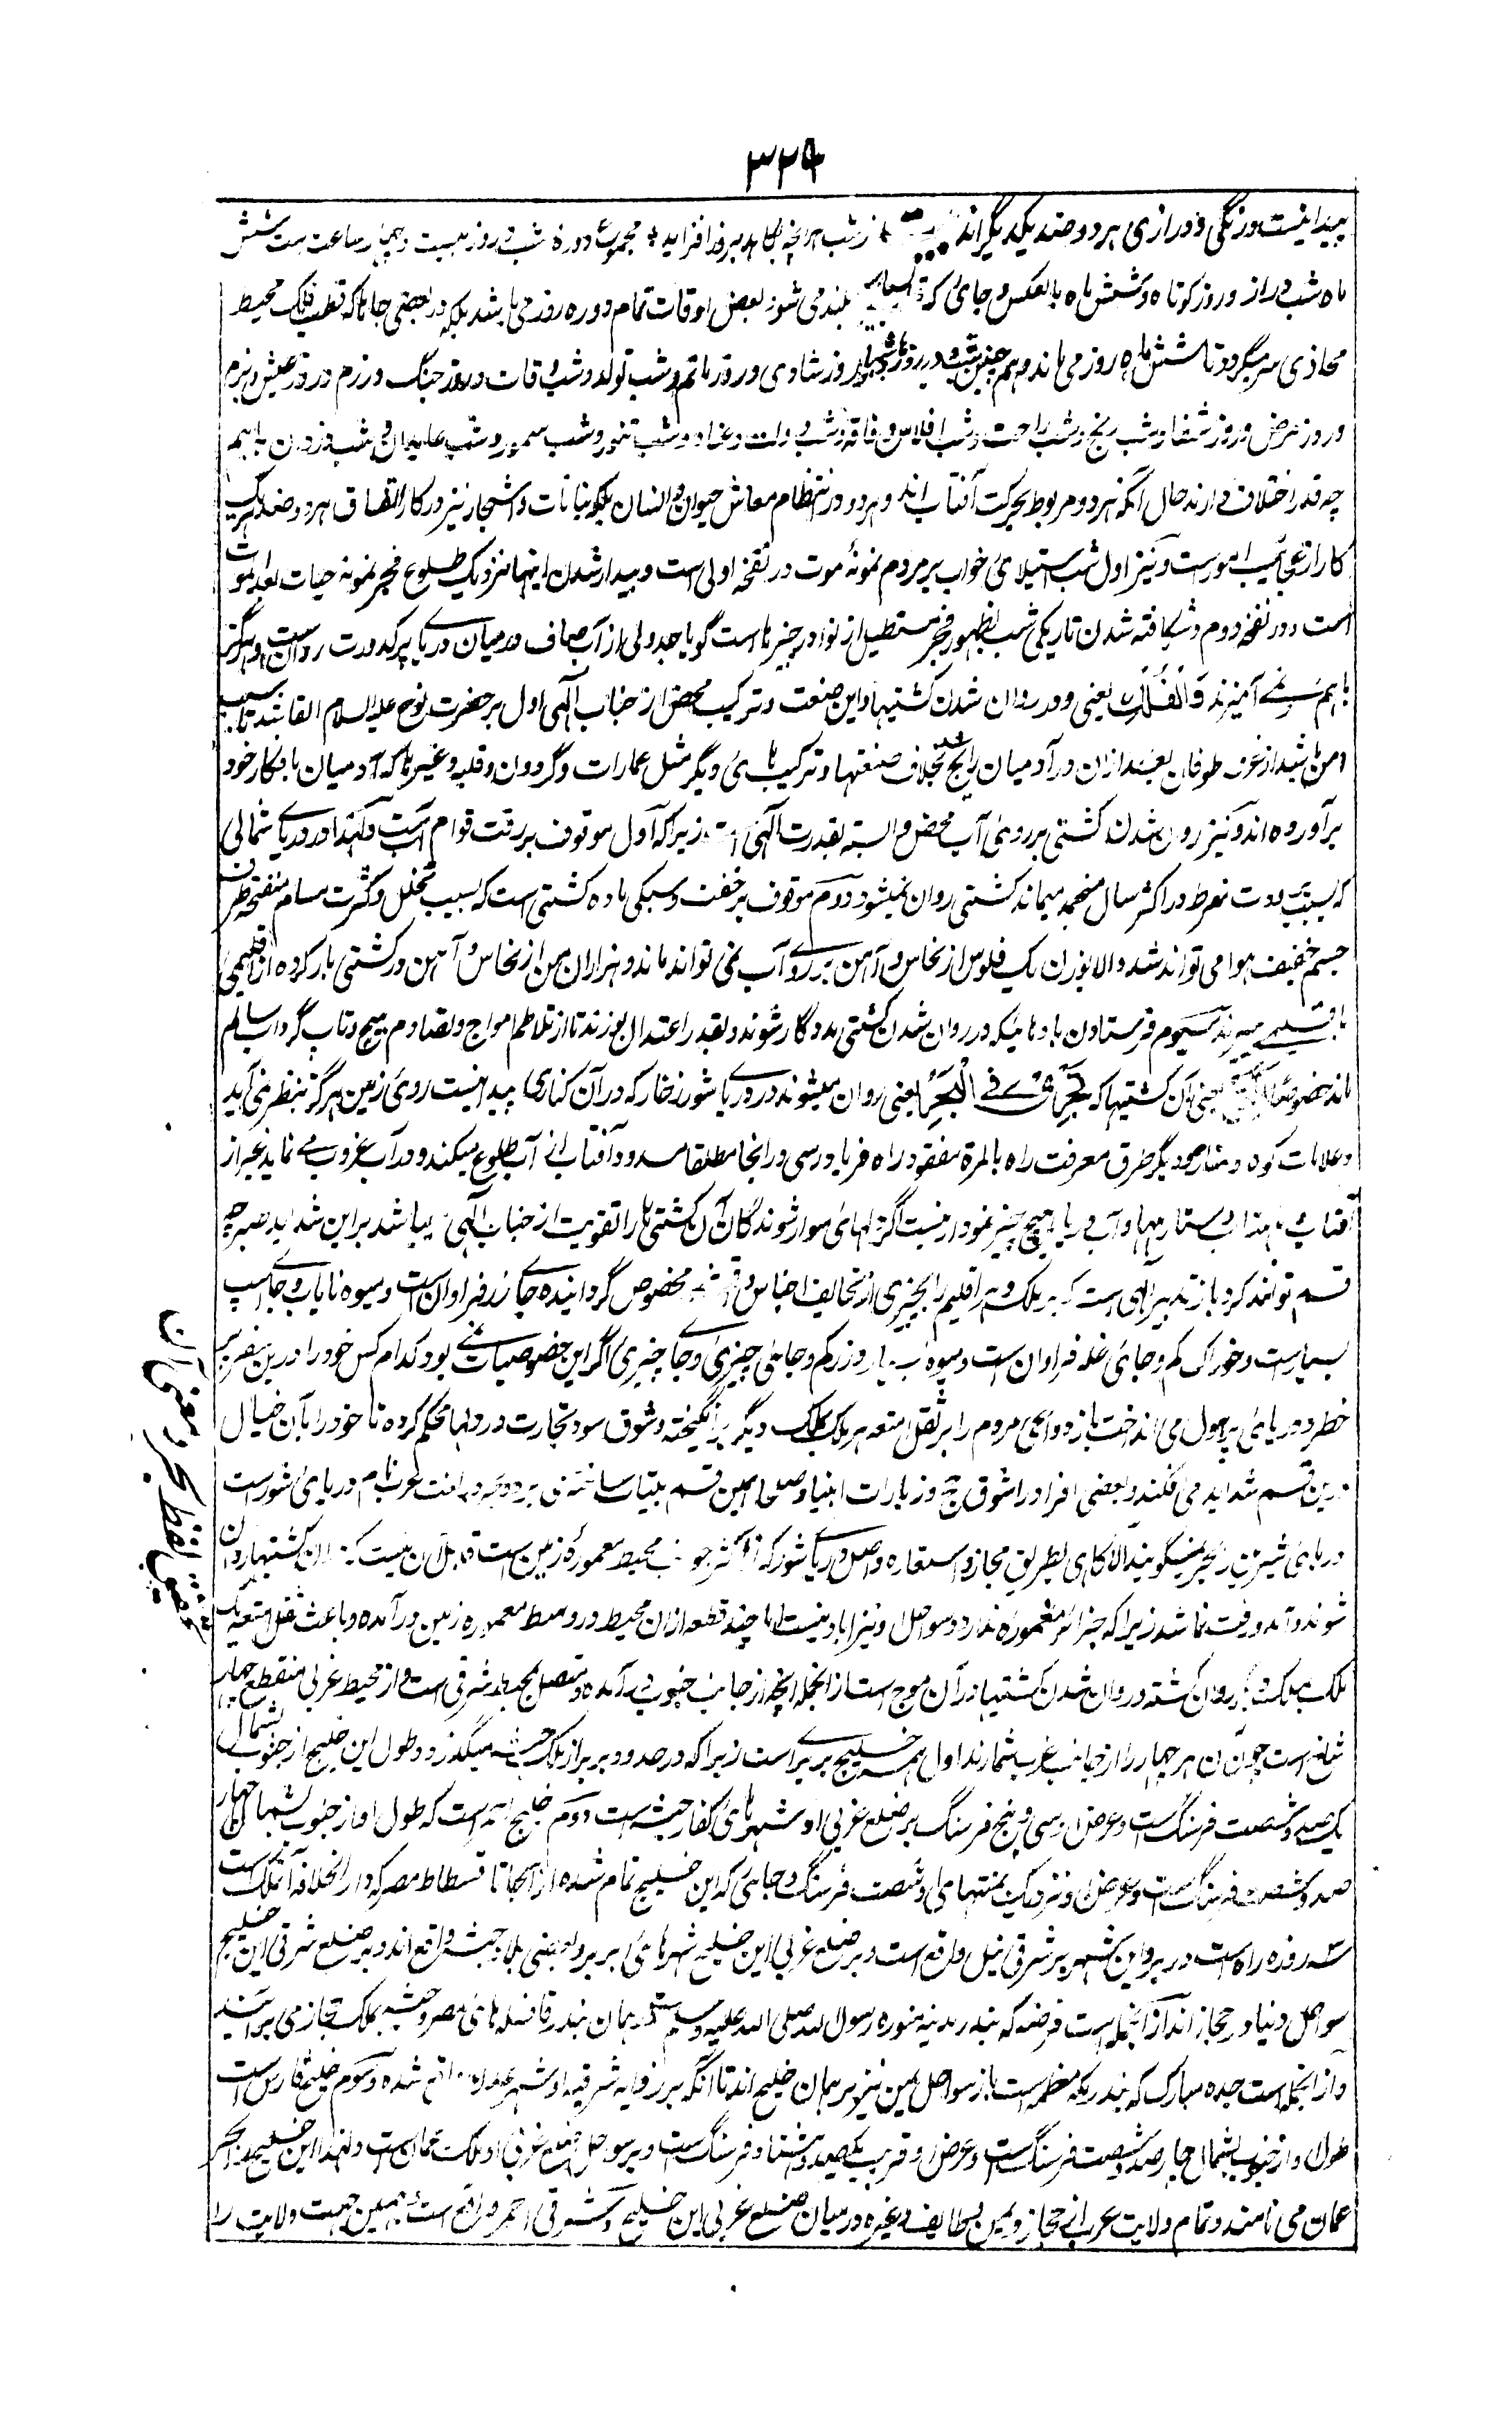 ۳۲۹
پیدا نیست و رنگی و درازی هر دو ضد یکدیگر اند از شب هر آنچه بکاهد بروز افزاید و مجموع دوره شب و روز بیست و چهار ساعت ست شش
ماه شب دراز و روز کوتاه و شش ماه بالعکس و جای که بلند می شود بعض اوقات تمام دوره روز می باشد بلکه در بعضی جاها که قطب فلک محیط
محاذی سر میگردد تا شش ماه روز می ماند و هم چنین شب و در روز شادی و روز ماتم و شب تولد و شب وفات و روز جنگ و رزم و روز عیش و بزم
و روز مرض و روز شفا و شب رنج و شب راحت و شب افلاس و فاقه و شب دولت و غنا و شب تنور و شب سمور و شب عابدان و شب دزدان باهم
چه قدر اختلاف دارند حال آنکه هر دو مربوط بحرکت آفتاب اند و هر دو در انتظام معاش حیوان و انسان بلکه نباتات و اشجار نیز در کار اتفاق هر دو ضد بر یک
کار از عجایب امور است و نیز اول شب استیلای خواب بر مردم نمونهٔ موت در نفخهٔ اولی است و بیدار شدن اینها نزدیک طلوع فجر نمونه حیات بعد الموت
است در نفخهٔ دوم و شگافته شدن تاریکی شب بظهور فجر مستطیل از نوادر چیزها است گویا جدولی از آب صاف در میان دریای پر کدورت روان است و هرگز
باهم نمی آمیزند وَالْفُلْكِ یعنی و در روان شدن کشتیها و این صنعت و ترکیب محض از جناب الهی اول بر حضرت نوح علیه السلام القا شد تا بسبب
امن باشد از غرق طوفان بعد ازان در آدمیان رایج شد بخلاف صنعتها و ترکیب های دیگر مثل عمارات و گردون و قلبه و غیرها که آدمیان بافکار خود
برآورده اند و نیز روان شدن کشتی بر روی آب محض وابسته بقدرت الهی است زیرا که اول موقوف بر رقت قوام آب است و لهذا در دریای شمالی
که بسبب برودت مفرط در اکثر سال منجمد میماند کشتی روان نمیشود دوم موقوف بر خفت و سبکی ماده کشتی است که بسبب تخلخل و کثرت مسام منفتحه ظرف
جسم خفیف هوا می تواند شد و الا بوزن یک فلوس از نحاس و آهن بر روی آب نمی تواند ماند و هزاران من از نحاس و آهن در کشتی بار کرده از اقلیمی
باقلیمی میبرند سیوم فرستادن بادهائیکه در روان شدن کشتی مددگار شوند و بقدر اعتدال بوزند تا از تلاطم امواج و تصادم پیچ و تاب گرداب سالم
ماند خصوصا یعنی آن کشتیها که تَجْرِي فِي الْبَحْرِ یعنی روان میشوند در دریا شور زخار که در آن کناری پیدا نیست روی زمین هرگز بنظر نمی آید
و علامات کوه و مناره و دیگر طرق معرفت راه بالمره مفقود راه فریاد رسی در انجا مطلقا مسدود آفتاب از آب طلوع میکند و در آب غروب مے نماید غیر از
آفتاب و ماهتاب و ستارها و آب دریا هیچ چیز نمودار نیست اگر دلهای سوار شوندگان آن کشتی ها را تقویت از جناب الهی نباشد بر این شداید صبر چه
قسم توانند کرد باز تدبیر الهی است که هر ملک و هر اقلیم را بچیزی از تحایف اجناس و مخصوص گردانیده جای زر فراوان است و میوه نایاب و جا اسپ
بسیار است و خوراک کم و جای غله فراوان ست و میوه و زر کم و جای چیزی و جای چیزی اگر این خصوصیات نمی بود کدام کس خود را درین سفر پر
خطر و دریای پر هول می انداخت باز دواعی مردم را بر نقل امتعه هر ملک بملک دیگر برانگیخته و شوق سود تجارت در دلها محکم کرده تا خود را بآن خیال
درین قسم شداید می افگنند و بعضی افراد را شوق حج و زیارات انبیا و صلحا همین قسم بیتاب ساخته می برد و بحر در لغت عرب نام دریای شور است
دریای شیرین را بحر نمیگویند الا گاهی بطریق مجاز و استعاره و اصل دریای شور که اکثر جوانب محیط معمورهٔ زمین است قابل آن نیست که دران کشتیها روان
شوند و آمد و رفت نماید زیرا که جزائر معموره ندارد و سواحل او نیز آباد نیست اما چند قطعه ازان محیط در وسط معموره زمین درآمده و باعث نقل امتعه یک
ملک بملک دیگر روان گشته و روان شدن کشتیها در آن موج است از انجمله آنچه از جانب جنوب در آمده و متصل بمحیط شرقی است و از محیط غربی منقطع چهار
شاخ است چون آن هر چهار را از جانب غرب شمارند اول همه خلیج بربر است زیرا که در حدود بربر از ملک حبشه میگذرد و طول این خلیج از جنوب بشمال
یک صد و شصت فرسنگ است و عرض او سی و پنج فرسنگ بر ضلع غربی او شهر های کفار حبشه است دوم خلیج احمر است که طول او از جنوب بشمال چهار
صد و شصت فرسنگ است و عرض او نزدیک بمنتهای او شصت فرسنگ و جای که این خلیج تمام شده از آنجا تا فسطاط مصر که دار الخلافه آن ملک است
سه روزه راه است در بر و این شهر بر شرقی نیل واقع است و بر ضلع غربی این خلیج شهرهای بربر و بعضی بلاد حبشه واقع اند و بر ضلع شرقی این خلیج
سواحل دنیا و حجاز اند از انجمله است فرضه که بندر مدینه منوره رسول الله صلی الله علیه وسلم همان بندر قافله های مصر و حبشه بملک حجاز می برآیند
و از انجمله است جده مبارک که بندر مکه معظمه است باز سواحل یمن نیز بر همان خلیج اند تا آنکه بر زاویه شرقیه او شهر عدن واقع شده و سوم خلیج فارس است
طول او از جنوب بشمال چار صد و شصت فرسنگ است و عرض او قریب یکصد و هشتاد فرسنگ است و بر سواحل ضلع غربی او ملک عمان است و لهذا این خلیج را بحر
عمان می نامند و تمام ولایت عرب از حجاز و یمن و طایف و غیره در میان ضلع غربی این خلیج و شرقی احمر واقع است و بهمین جهت ولایت را
تحقیق لفظ بحر و معنی آن